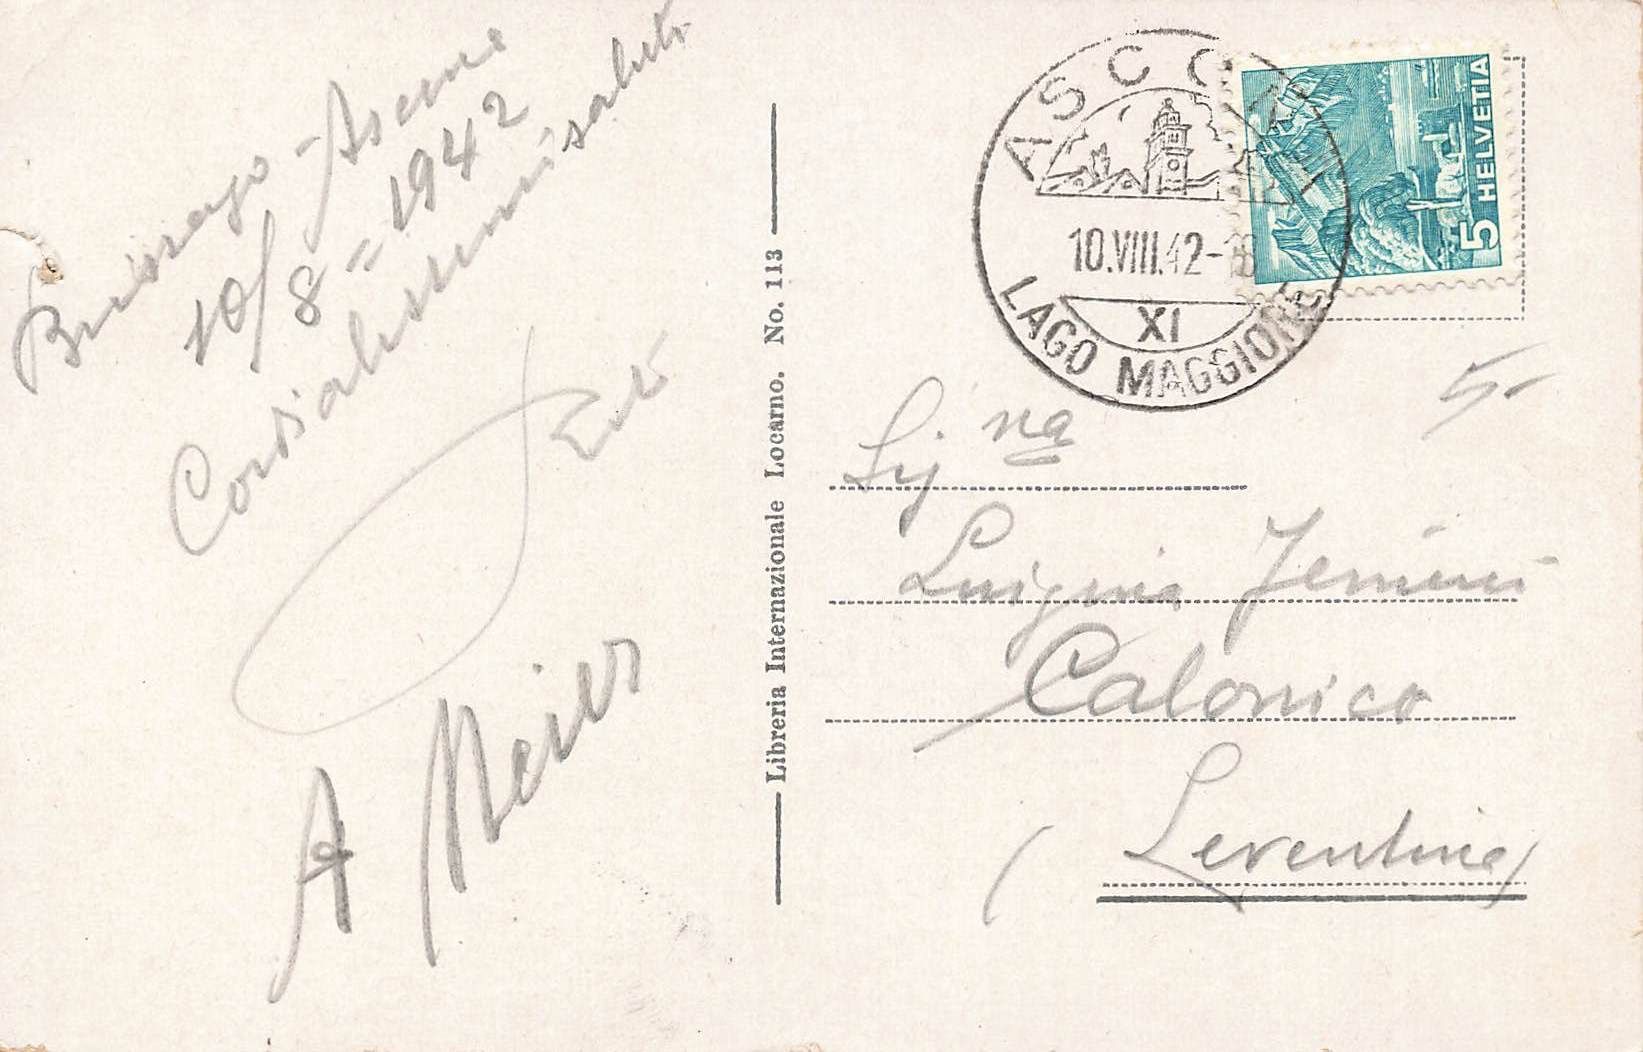 Brissago - Ascona
10/8 = 1942
Cordialissimi saluti
A Meier
Libreria Internazionale Locarno. No. 113
ASCONA
10.VIII.42-18
XI
LAGO MAGGIORE
5 HELVETIA
5.-
Sig na
Luigina Jemini
Calonico
(Leventina)